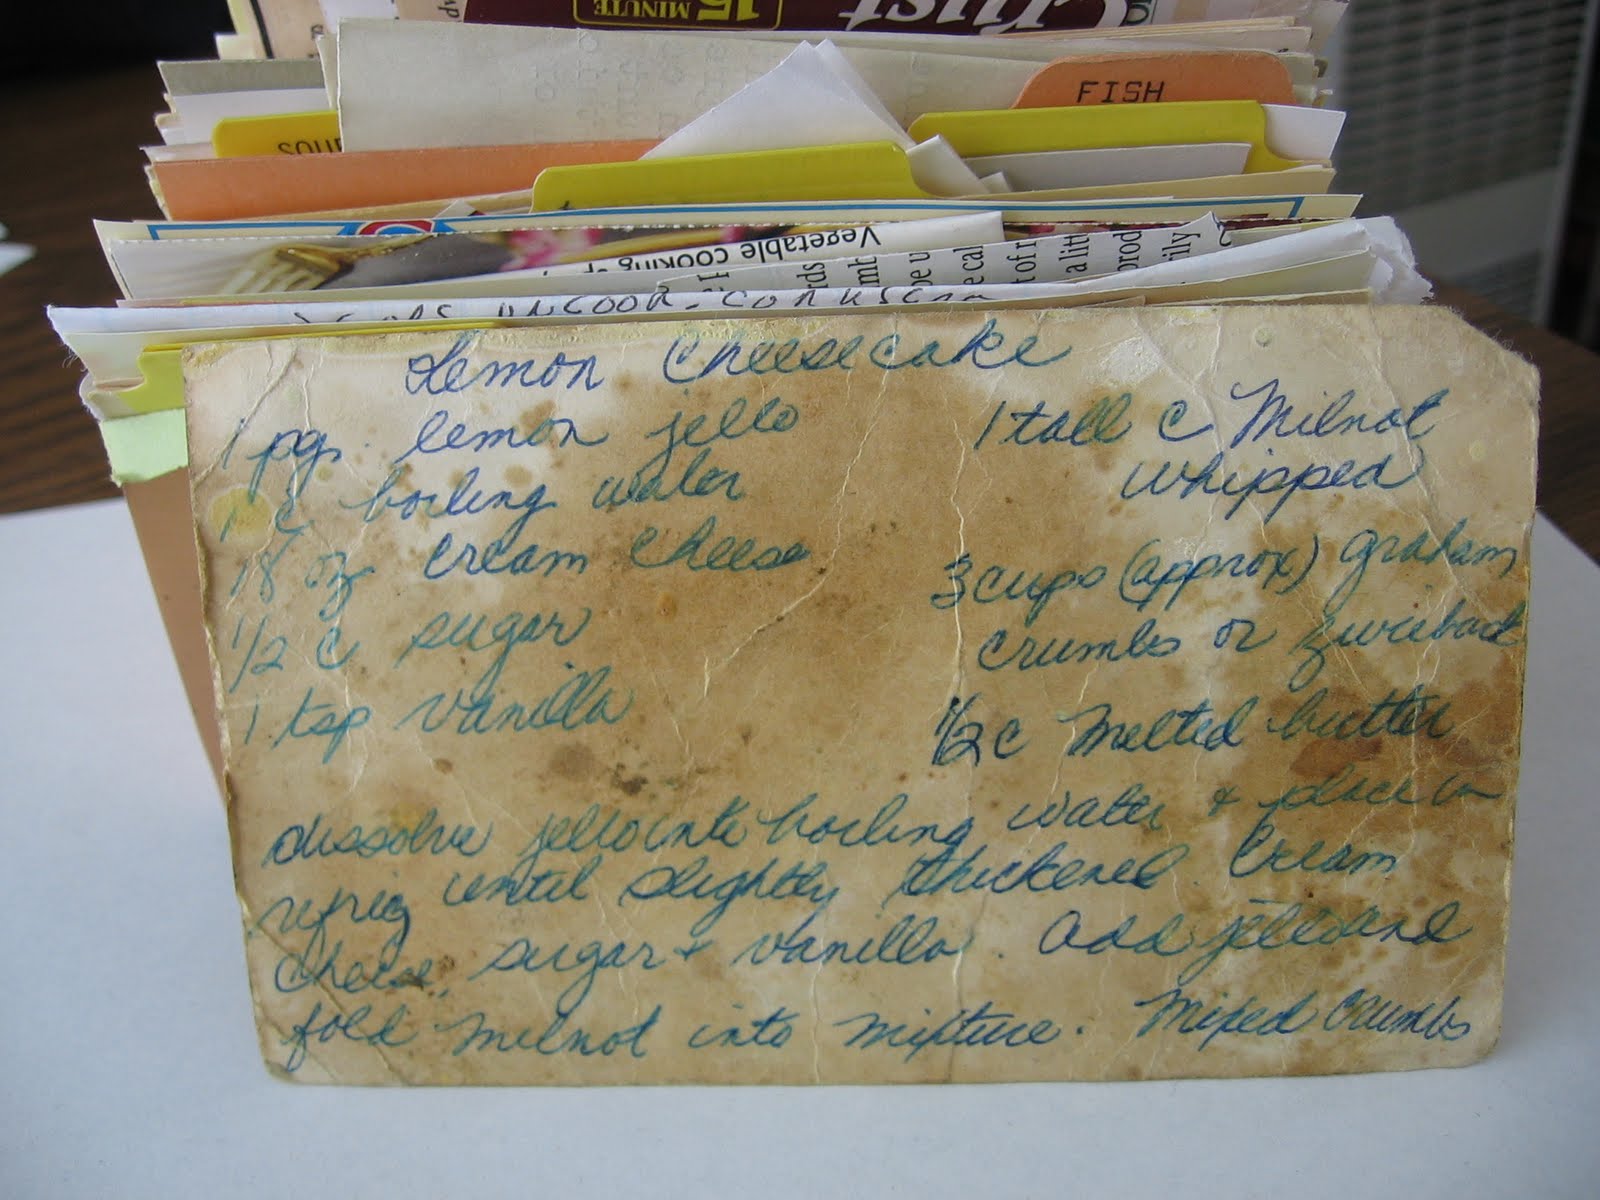 Crust
15 MINUTE
FISH
SOUP
Vegetable cooking
UNCOOK
Lemon Cheesecake
1 pg. lemon jello
1 c boiling water
1 8 oz cream cheese
1/2 c sugar
1 tsp vanilla
1 tall c Milnot
whipped
3 cups (approx) graham
crumbs or zwieback
1/2 c Melted butter
dissolve jello into boiling water & place in
refrig until slightly thickened. Cream
cheese, sugar & vanilla. Add jello and
fold Milnot into mixture. Mixed crumbs